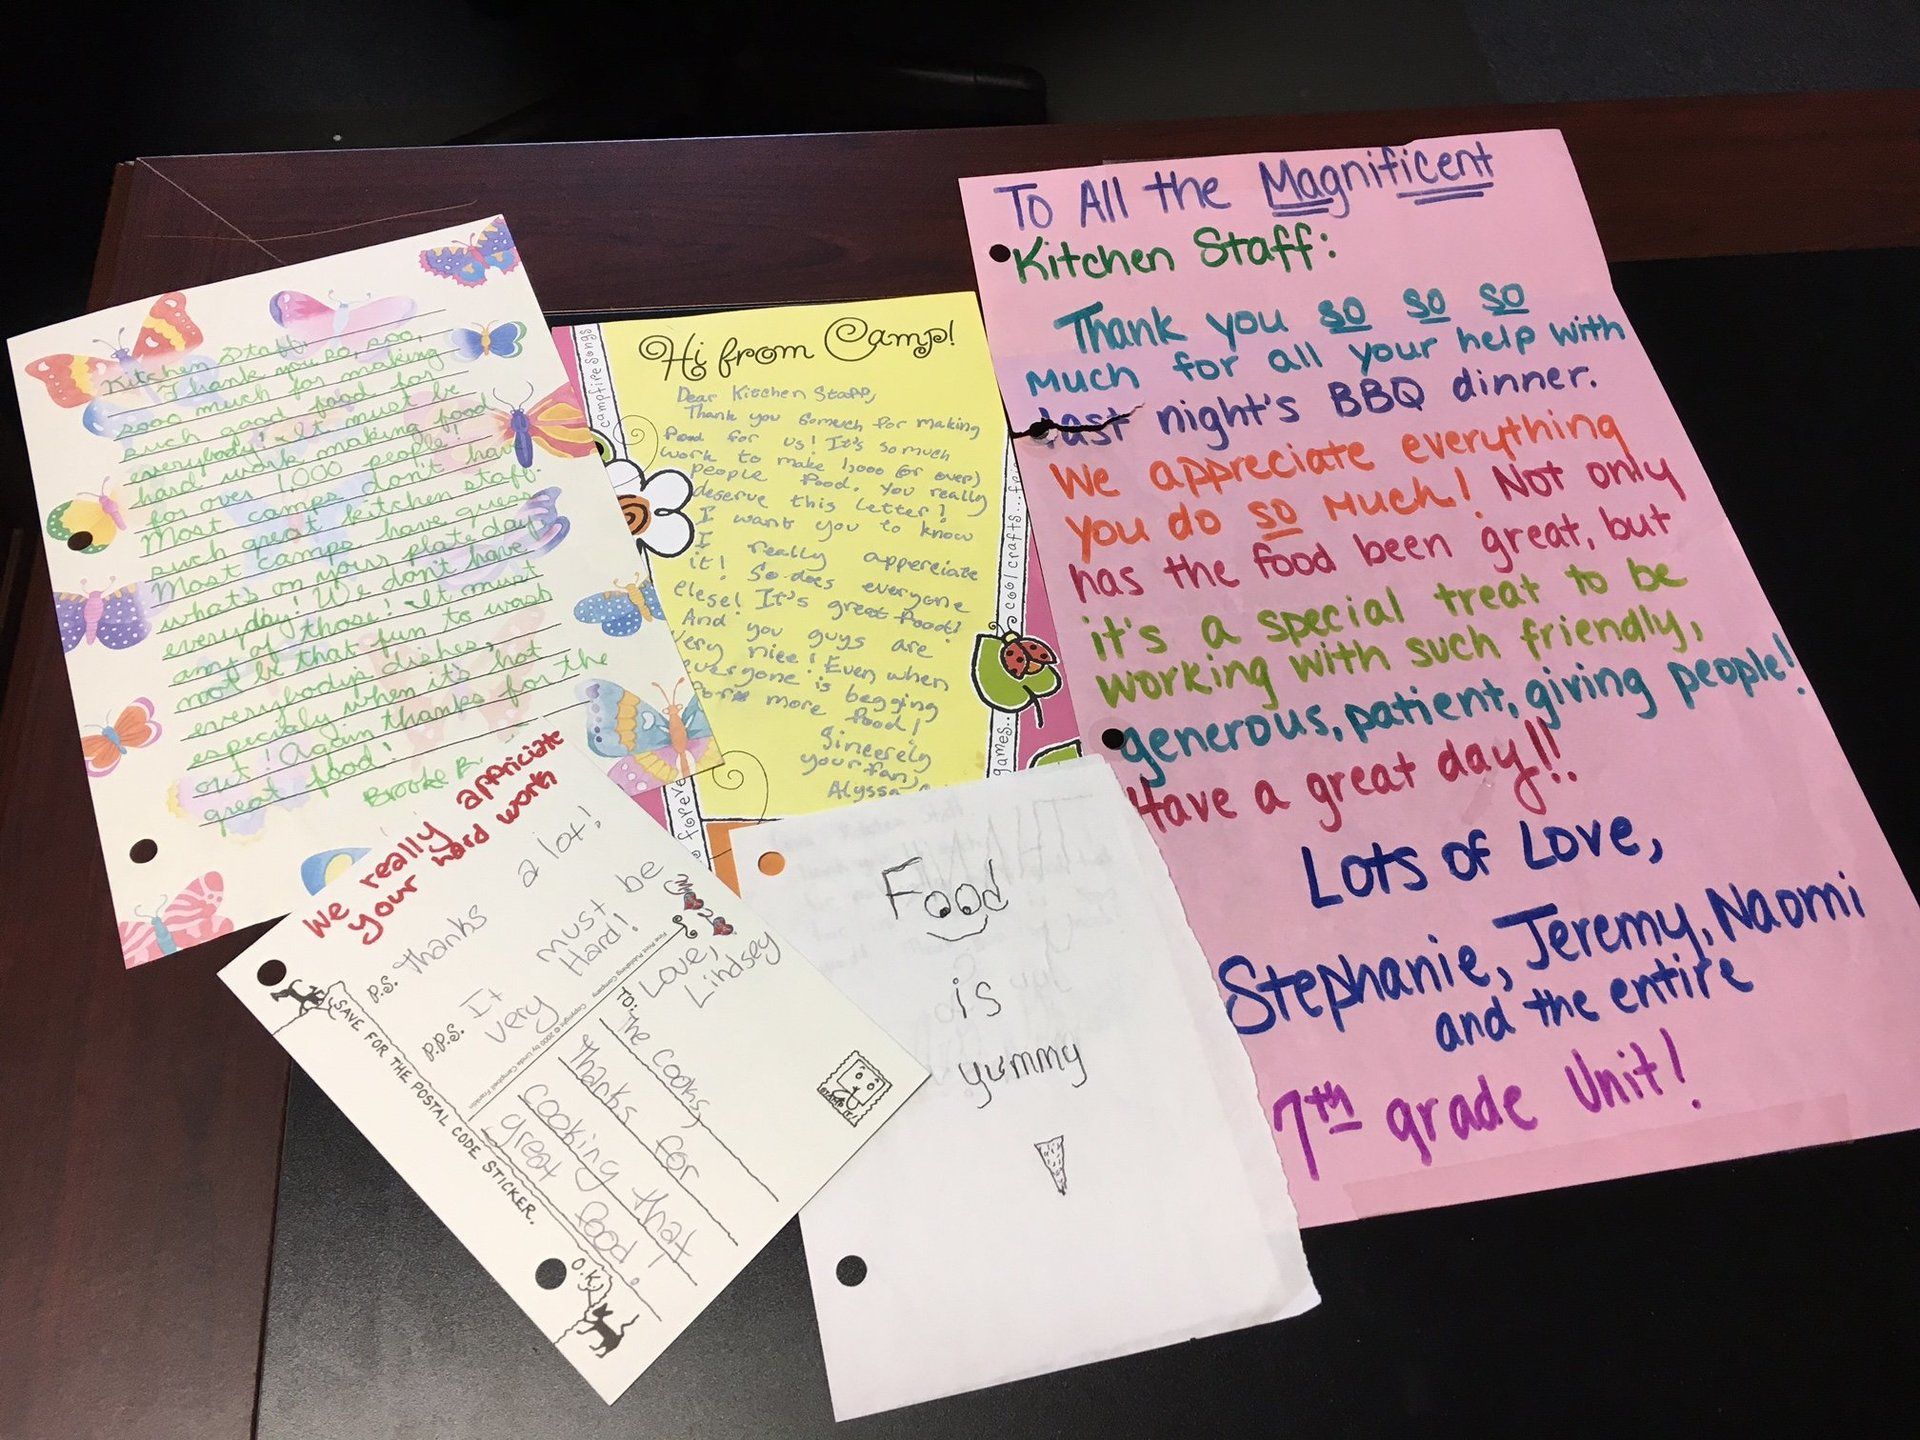 Kitchen Staff,
Thank you so, soo,
sooo much for making
such good food for
everybody! It must be
hard work making food
for over 1,000 people!
Most camps don't have
such great kitchen staff.
Most camps have guess
what's on your plate day
everyday! We don't have
any of those! It must
not be that fun to wash
everybody's dishes,
especialy when it's hot
out! Again thanks for the
great food!
Brooke R.
Hi from Camp!
Dear Kitchen Staff,
Thank you somuch for making
food for us! It's so much
work to make 1,000 (or over)
people food. You really
deserve this letter!
I want you to know
I really appereciate
it! So does everyone
elese! It's great food!
And you guys are
very nice! Even when
everyone is begging
for more food!
Sincerely
your fan,
Alyssa
campfire songs
cool crafts...
games...
foreve
To All the Magnificent
Kitchen Staff:
Thank you so so so
much for all your help with
last night's BBQ dinner.
We appreciate everything
you do so much! Not only
has the food been great, but
it's a special treat to be
working with such friendly,
generous, patient, giving people!
Have a great day!!
Lots of Love,
Stephanie, Jeremy, Naomi
and the entire
7th grade Unit!
We really appriciate
your hard work
P.S. Thanks a lot!
P.P.S. It must be
very Hard!
Love,
Lindsey
Fine Print Publishing Company Copyright © 2000 by Linda Campbell Franklin
TO: The Cooks,
Thanks for
cooking that
great food!
STAMP IT!
SAVE FOR THE POSTAL CODE STICKER.
O.K.
Food
is
yummy